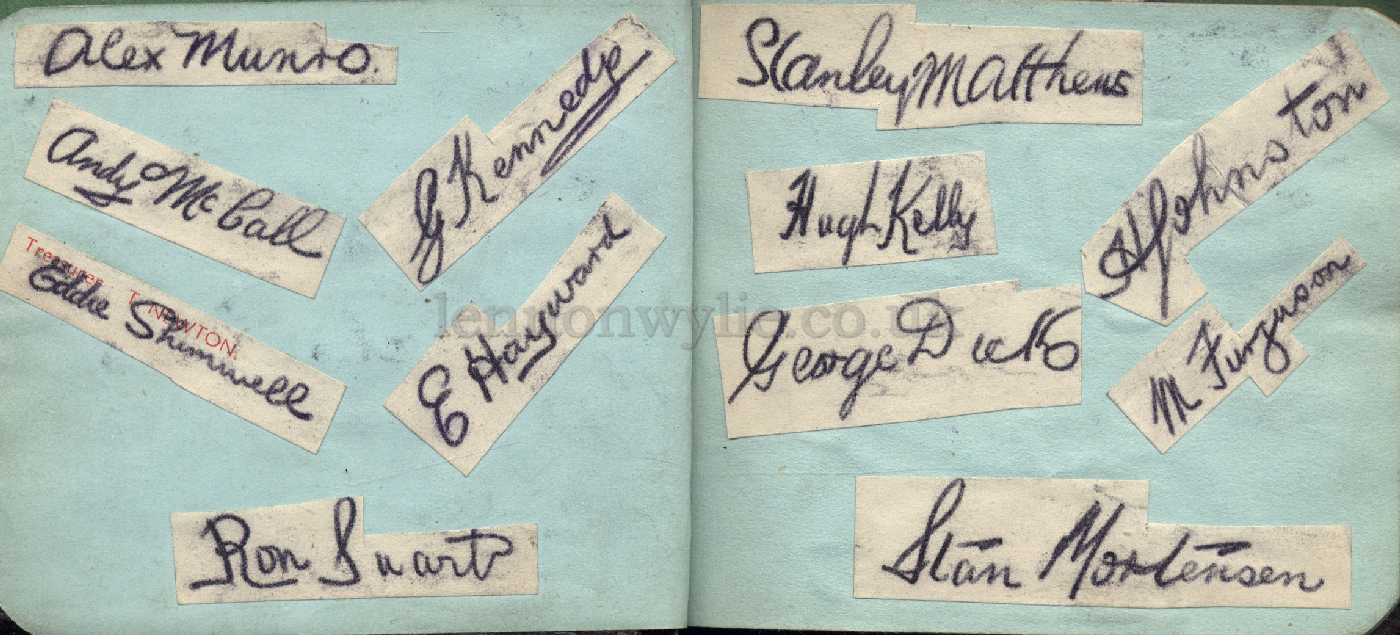 Alex Munro.
G Kennedy
Andy McCall
Treasurer, T. NEWTON.
Eddie Shimwell
E Hayward
Ron Suart
Stanley Matthews
H Johnston
Hugh Kelly
George Dick
M Furguson
Stan Mortensen
lennonwylie.co.uk